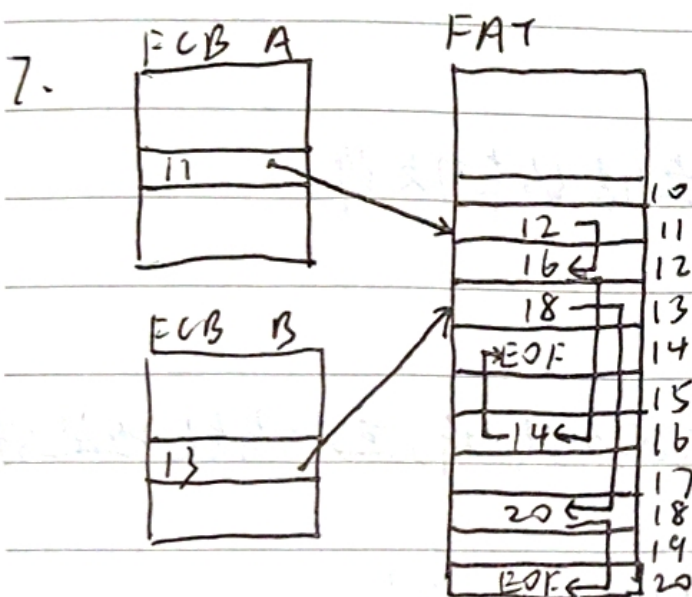 7.
FCB A
11
FCB B
13
FAT
10
12 11
16 12
18 13
EOF 14
15
14 16
17
20 18
19
EOF 20